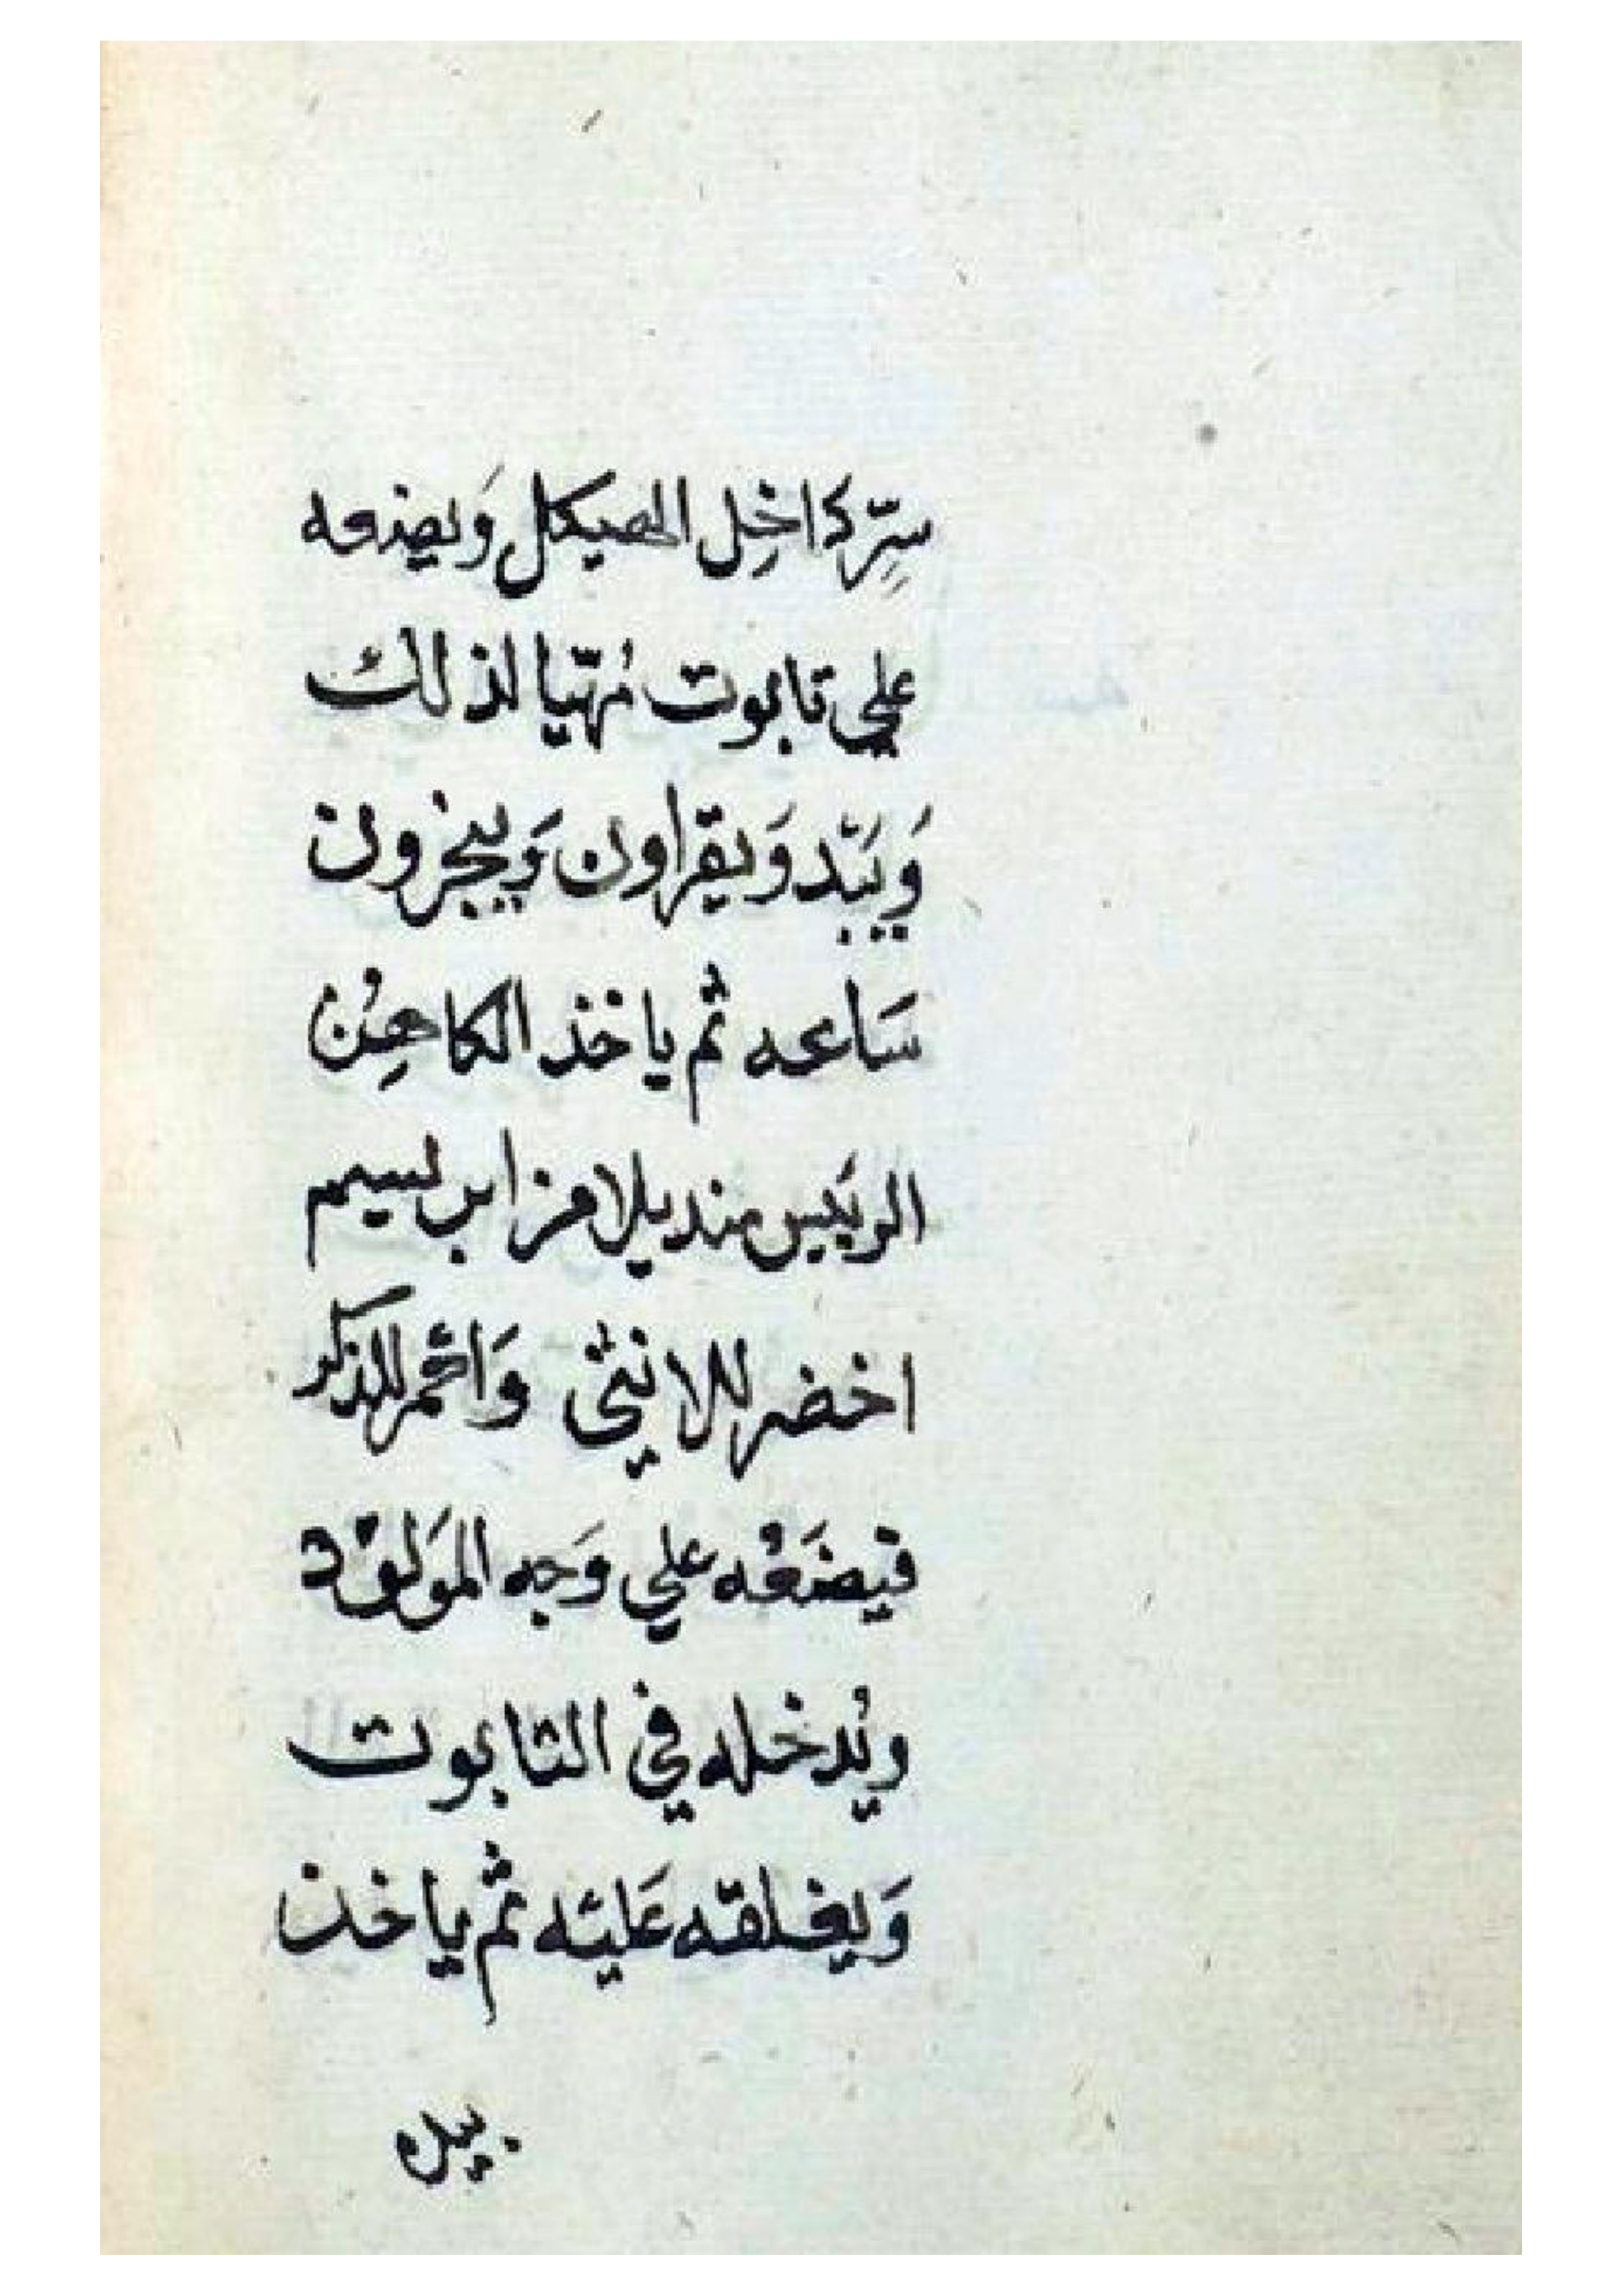 سِرِّ داخِل الهيكل وَيضعه
علي تابوت مُهّيا لذلك
وَيَبّدوَيقراون وَيبخرون
سَاعه ثم ياخذ الكاهِنُ
الريَيس منديلا من ابرلسيم
اخضر للانثي وَاحمر للذكر
فيضَعْه علي وَجه الموَلوْد
ويُدخله في التابوت
وَيغلقه عَليْه ثم ياخذ
بيده